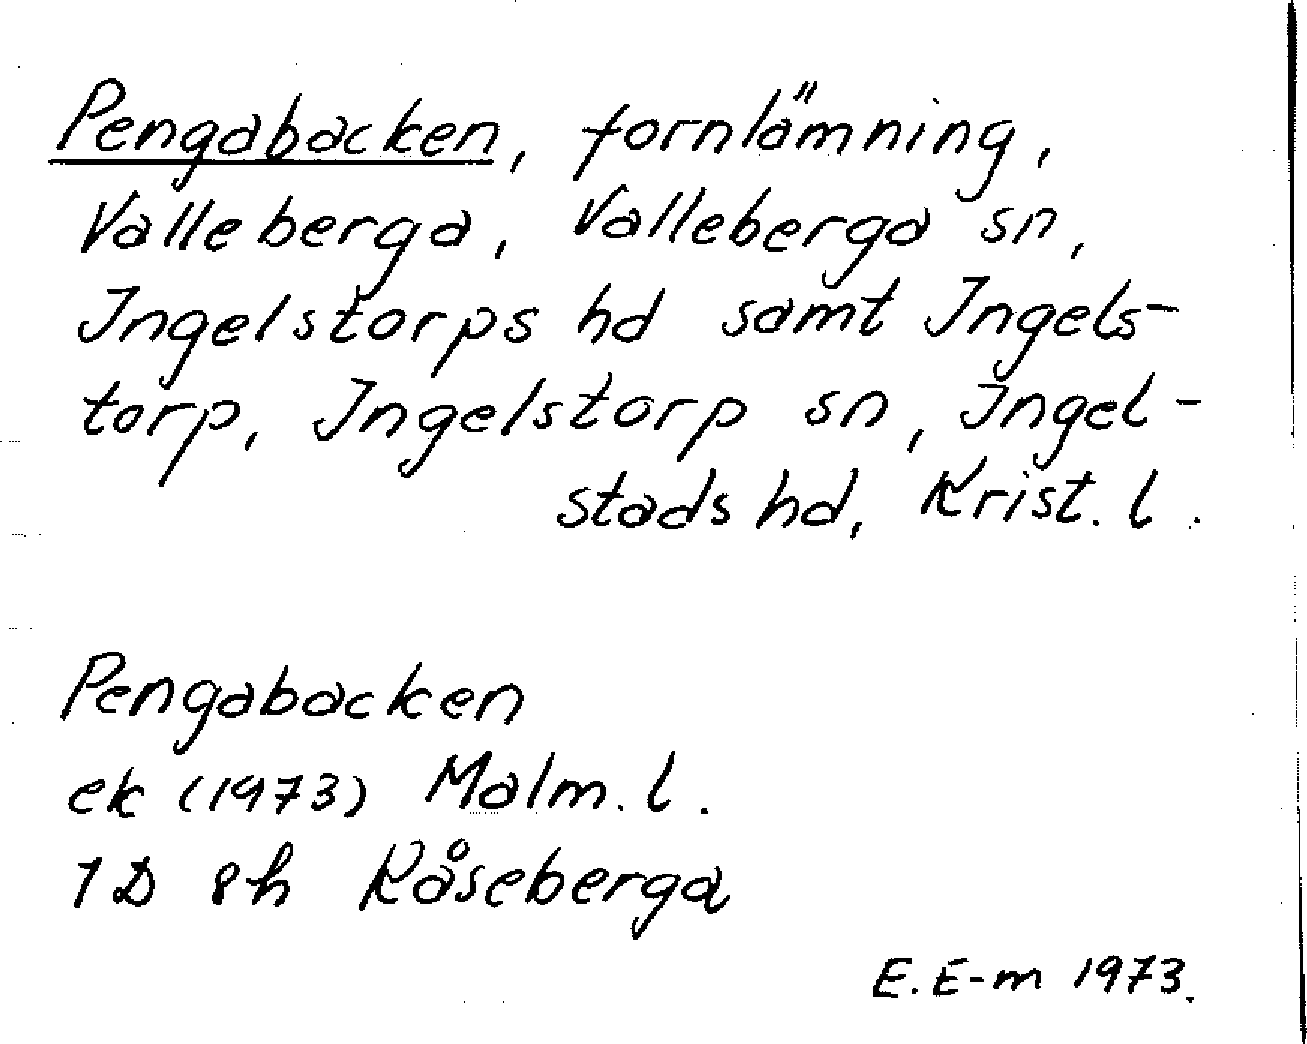 Pengabacken, fornlämning,
Valleberga, Valleberga sn,
Ingelstorps hd samt Ingels-
torp, Ingelstorp sn, Ingel-
stads hd, Krist. l.
Pengabacken
ek (1973) Malm. l.
1D 8h Kåseberga
E. E-m 1973.